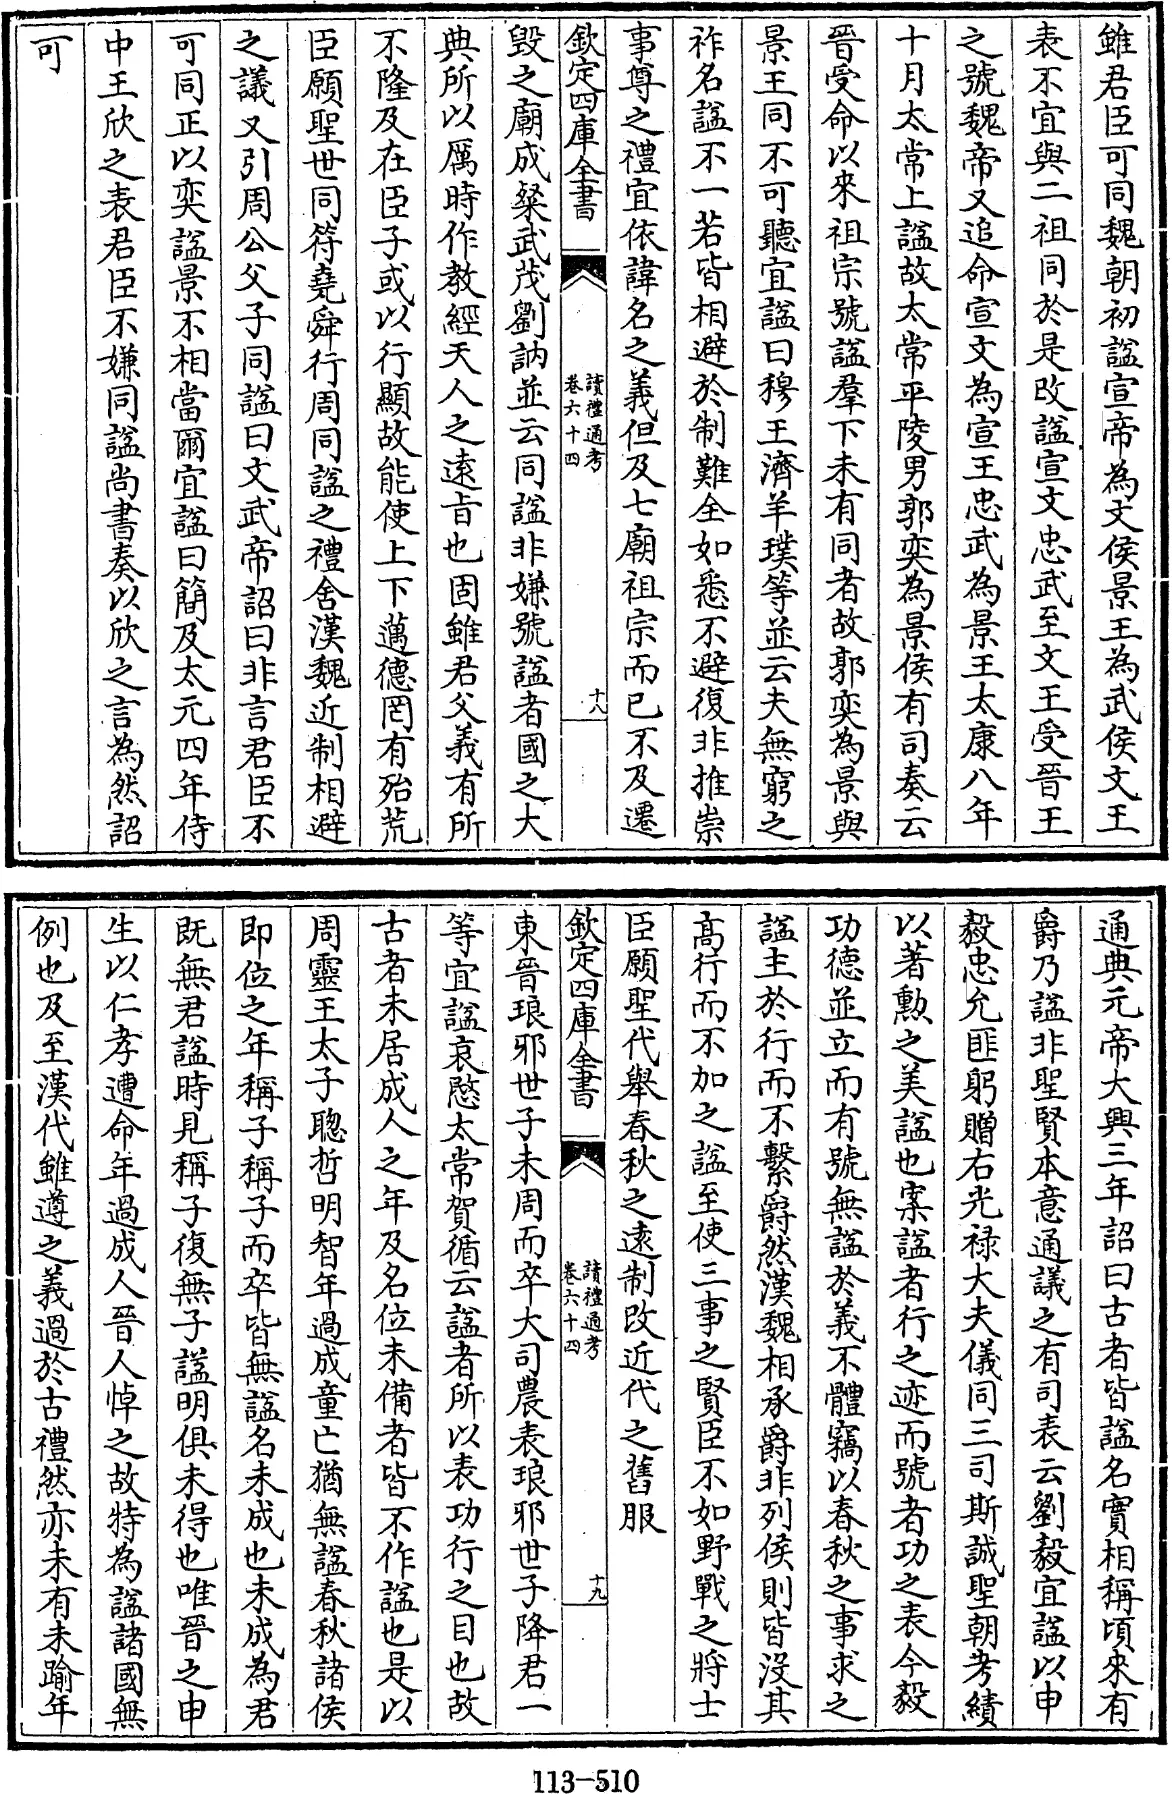 雖君臣可同魏朝初諡宣帝為文侯景王為武侯文王
表不宜與二祖同於是改諡宣文忠武至文王受晉王
之號魏帝又追命宣文為宣王忠武為景王太康八年
十月太常上諡故太常平陵男郭奕為景侯有司奏云
晉受命以來祖宗號諡羣下未有同者故郭奕為景與
景王同不可聽宜諡曰穆王濟羊璞等並云夫無窮之
祚名諡不一若皆相避於制難全如悉不避復非推崇
事尊之禮宜依諱名之義但及七廟祖宗而已不及遷
欽定四庫全書
讀禮通考
卷六十四
十八
毀之廟成粲武茂劉訥並云同諡非嫌號諡者國之大
典所以厲時作教經天人之遠旨也固雖君父義有所
不隆及在臣子或以行顯故能使上下邁德罔有殆荒
臣願聖世同符堯舜行周同諡之禮舍漢魏近制相避
之議又引周公父子同諡曰文武帝詔曰非言君臣不
可同正以奕諡景不相當爾宜諡曰簡及太元四年侍
中王欣之表君臣不嫌同諡尚書奏以欣之言為然詔
可
通典元帝大興三年詔曰古者皆諡名實相稱頃來有
爵乃諡非聖賢本意通議之有司表云劉毅宜諡以申
毅忠允匪躬贈右光祿大夫儀同三司斯誠聖朝考績
以著勲之美諡也案諡者行之迹而號者功之表今毅
功德並立而有號無諡於義不體竊以春秋之事求之
諡主於行而不繫爵然漢魏相承爵非列侯則皆沒其
高行而不加之諡至使三事之賢臣不如野戰之將士
臣願聖代舉春秋之遠制改近代之舊服
欽定四庫全書
讀禮通考
卷六十四
十九
東晉琅邪世子未周而卒大司農表琅邪世子降君一
等宜諡哀愍太常賀循云諡者所以表功行之目也故
古者未居成人之年及名位未備者皆不作諡也是以
周靈王太子聰哲明智年過成童亡猶無諡春秋諸侯
即位之年稱子稱子而卒皆無諡名未成也未成為君
既無君諡時見稱子復無子諡明俱未得也唯晉之申
生以仁孝遭命年過成人晉人悼之故特為諡諸國無
例也及至漢代雖遵之義過於古禮然亦未有未踰年
113-510